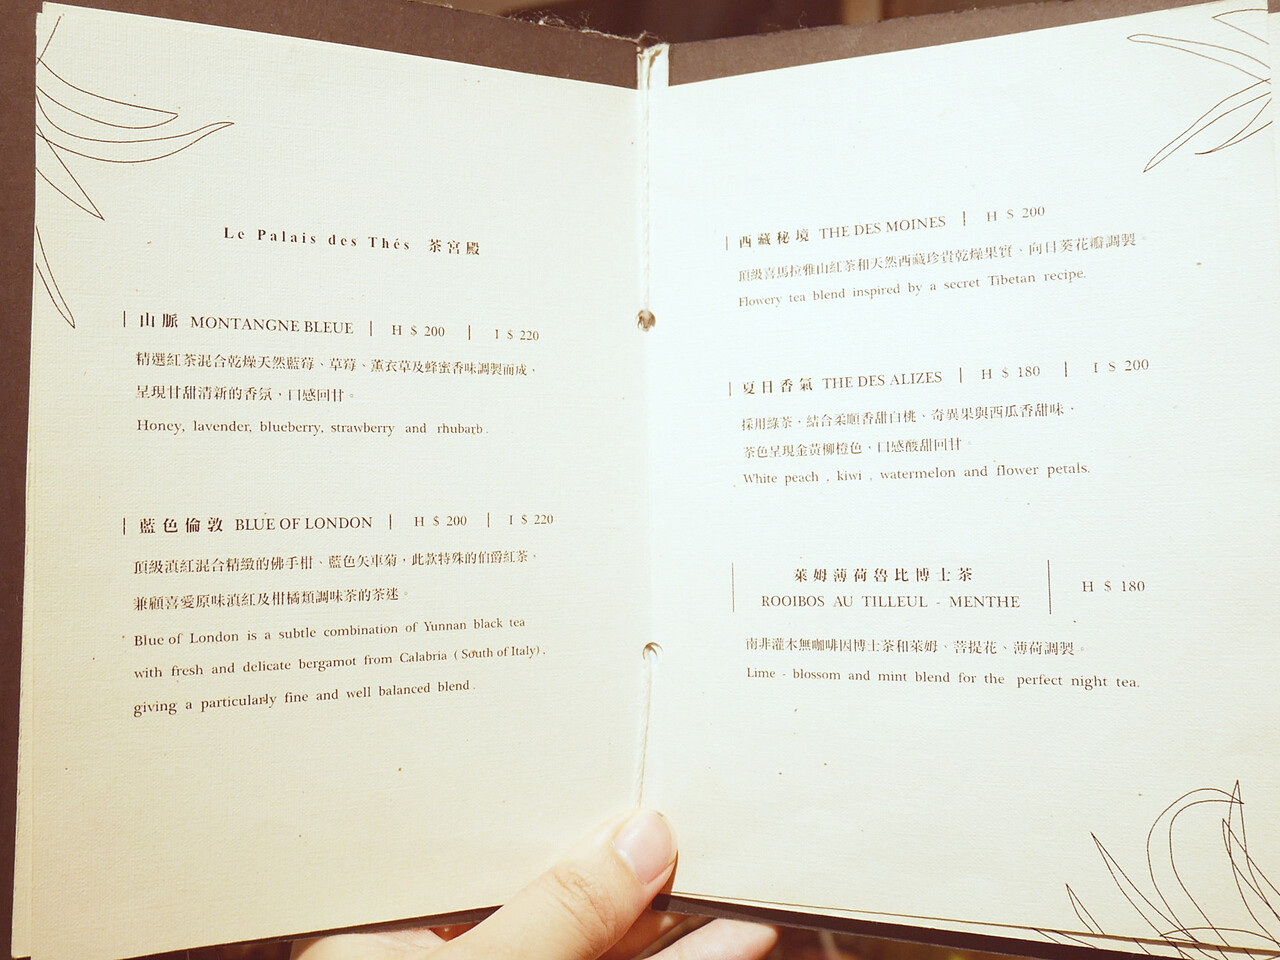 Le Palais des Thés 茶宮殿
山脈 MONTANGNE BLEUE | H $ 200 | I $ 220
精選紅茶混合乾燥天然藍莓、草莓、薰衣草及蜂蜜香味調製而成，
呈現甘甜清新的香氛，口感回甘。
Honey, lavender, blueberry, strawberry and rhubarb.
藍色倫敦 BLUE OF LONDON | H $ 200 | I $ 220
頂級滇紅混合精緻的佛手柑、藍色矢車菊，此款特殊的伯爵紅茶，
兼顧喜愛原味滇紅及柑橘類調味茶的茶迷。
Blue of London is a subtle combination of Yunnan black tea
with fresh and delicate bergamot from Calabria (South of Italy),
giving a particularly fine and well balanced blend.
西藏秘境 THE DES MOINES | H $ 200
頂級喜馬拉雅山紅茶和天然西藏珍貴乾燥果實、向日葵花瓣調製。
Flowery tea blend inspired by a secret Tibetan recipe.
夏日香氣 THE DES ALIZES | H $ 180 | I $ 200
採用綠茶，結合柔順香甜白桃、奇異果與西瓜香甜味，
茶色呈現金黃柳橙色，口感酸甜回甘。
White peach , kiwi , watermelon and flower petals.
萊姆薄荷魯比博士茶
ROOIBOS AU TILLEUL - MENTHE | H $ 180
南非灌木無咖啡因博士茶和萊姆、菩提花、薄荷調製。
Lime - blossom and mint blend for the perfect night tea.